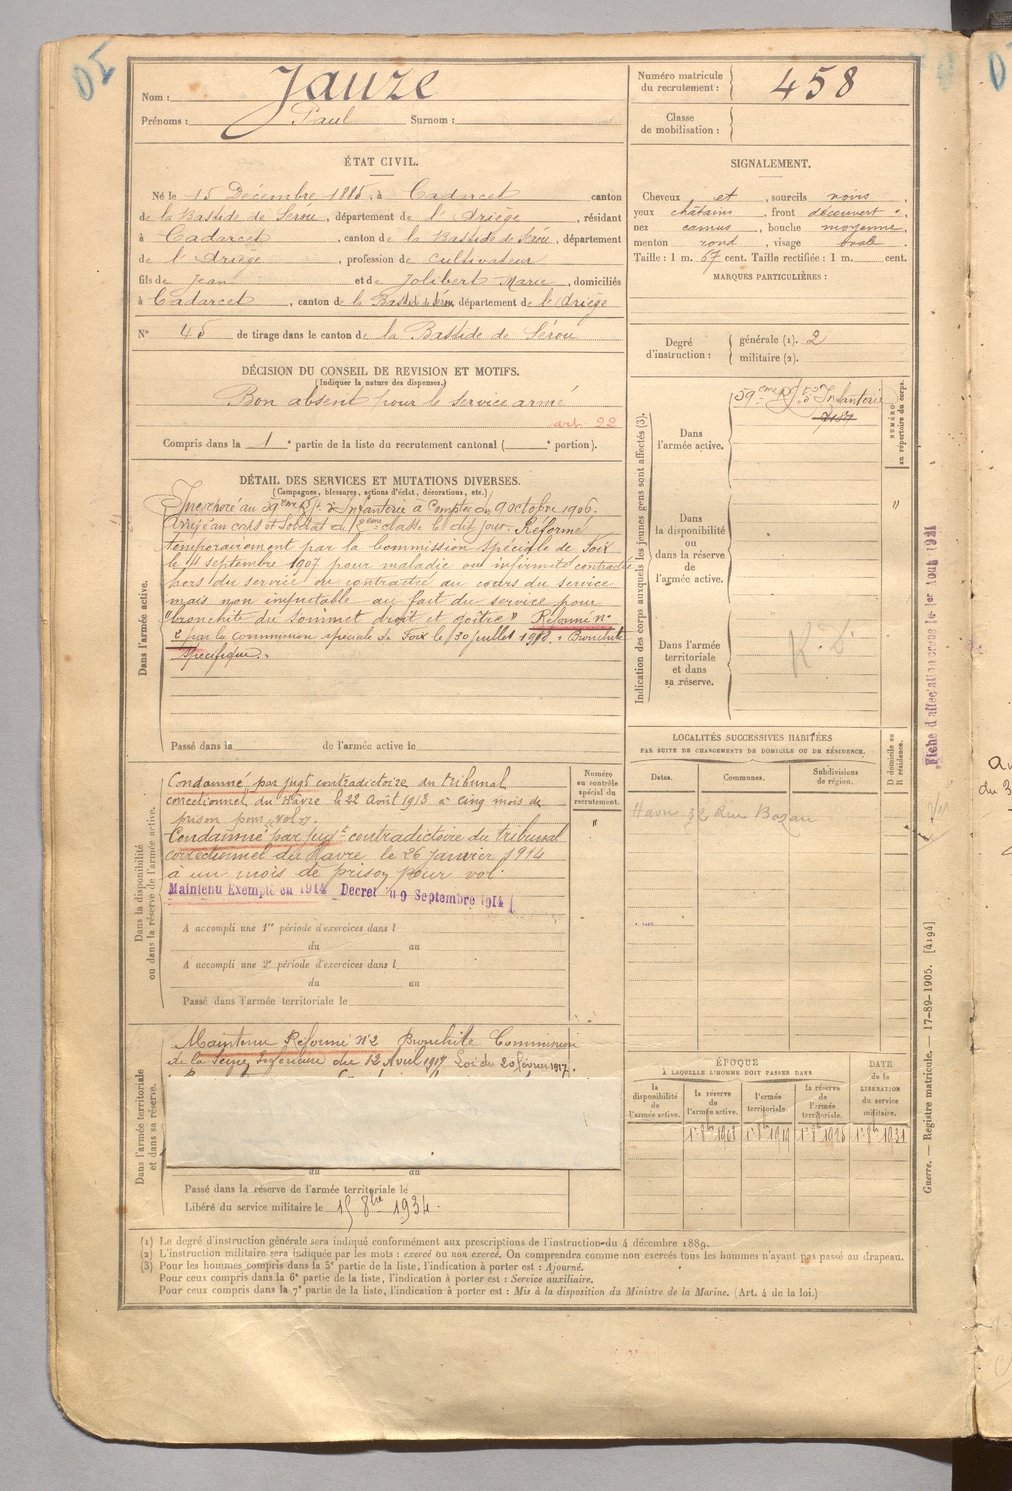 Nom : Jauze
Prénoms : Paul Surnom :
Numéro matricule du recrutement : 458
Classe de mobilisation :
ÉTAT CIVIL.
Né le 15 Décembre 1885, à Cadarcet canton
de la Bastide de Sérou, département de l'Ariège, résidant
à Cadarcet, canton de la Bastide de Sérou, département
de l'Ariège, profession de Cultivateur
fils de Jean et de Jolibert Marie, domiciliés
à Cadarcet, canton de la Bastide de Sérou, département de l'Ariège
N° 45 de tirage dans le canton de la Bastide de Sérou
SIGNALEMENT.
Cheveux et, sourcils noirs
yeux châtains, front découvert
nez camus, bouche moyenne,
menton rond, visage ovale.
Taille : 1 m. 67 cent. Taille rectifiée : 1 m. cent.
MARQUES PARTICULIÈRES :
Degré d'instruction : générale (1). 2
militaire (2).
DÉCISION DU CONSEIL DE REVISION ET MOTIFS.
(Indiquer la nature des dispenses.)
Bon absent pour le service armé
art. 22
Compris dans la 1e partie de la liste du recrutement cantonal ( e portion).
DÉTAIL DES SERVICES ET MUTATIONS DIVERSES.
(Campagnes, blessures, actions d'éclat, décorations, etc.)
Dans l'armée active.
Incorporé au 59eme Rgt d'Infanterie à compter du 9 octobre 1906.
Arrivé au corps et soldat de 2eme classe le dit jour. Réformé
temporairement par la Commission spéciale de Foix
le 14 septembre 1907 pour maladie ou infirmité contractée
hors du service ou contractée au cours du service
mais non imputable au fait du service pour
"bronchite du sommet droit et goître" Réformé n°
2 par la commission spéciale de Foix le 30 juillet 1908. "Bronchite
spécifique".
Passé dans la de l'armée active le
Indication des corps auxquels les jeunes gens sont affectés (3).
NUMÉRO au répertoire du corps.
Dans l'armée active.
59eme Rgt d'Infanterie
Dans la disponibilité ou dans la réserve de l'armée active.
"
Dans l'armée territoriale et dans sa réserve.
R. D.
Dans la disponibilité ou dans la réserve de l'armée active.
Condamné par jugt contradictoire du tribunal
correctionnel du Havre le 22 Août 1913 à cinq mois de
prison pour "vol".
Condamné par jugt contradictoire du tribunal
correctionnel du Havre le 26 janvier 1914
à un mois de prison pour vol.
Maintenu Exempté en 1914 Décret du 9 Septembre 1914
A accompli une 1re période d'exercices dans l
du au
A accompli une 2e période d'exercices dans l
du au
Passé dans l'armée territoriale le
Numéro au contrôle spécial du recrutement.
"
LOCALITÉS SUCCESSIVES HABITÉES
PAR SUITE DE CHANGEMENTS DE DOMICILE OU DE RÉSIDENCE.
Dates. Communes. Subdivisions de région. D domicile ou R résidence.
Havre 32 Rue Bazan
Dans l'armée territoriale et dans sa réserve.
Maintenu Réformé n°2 Bronchite Commission
de la Seine Inférieure du 12 Avril 1917 Loi du 20 février 1917.
du au
Passé dans la réserve de l'armée territoriale le
Libéré du service militaire le 15 8bre 1934.
ÉPOQUE
À LAQUELLE L'HOMME DOIT PASSER DANS
la disponibilité de l'armée active. la réserve de l'armée active. l'armée territoriale. la réserve de l'armée territoriale. DATE de la LIBÉRATION du service militaire.
1er 8bre 1908 1er 8bre 1919 1er 8bre 1925 1er 8bre 1931
(1) Le degré d'instruction générale sera indiqué conformément aux prescriptions de l'instruction du 4 décembre 1889.
(2) L'instruction militaire sera indiquée par les mots : exercé ou non exercé. On comprendra comme non exercés tous les hommes n'ayant pas passé au drapeau.
(3) Pour les hommes compris dans la 5e partie de la liste, l'indication à porter est : Ajourné.
Pour ceux compris dans la 6e partie de la liste, l'indication à porter est : Service auxiliaire.
Pour ceux compris dans la 7e partie de la liste, l'indication à porter est : Mis à la disposition du Ministre de la Marine. (Art. 4 de la loi.)
Fiche d'affectation créée le 1er Août 1921
Guerre. — Registre matricule. — 17-89-1905. [4194]
du 3